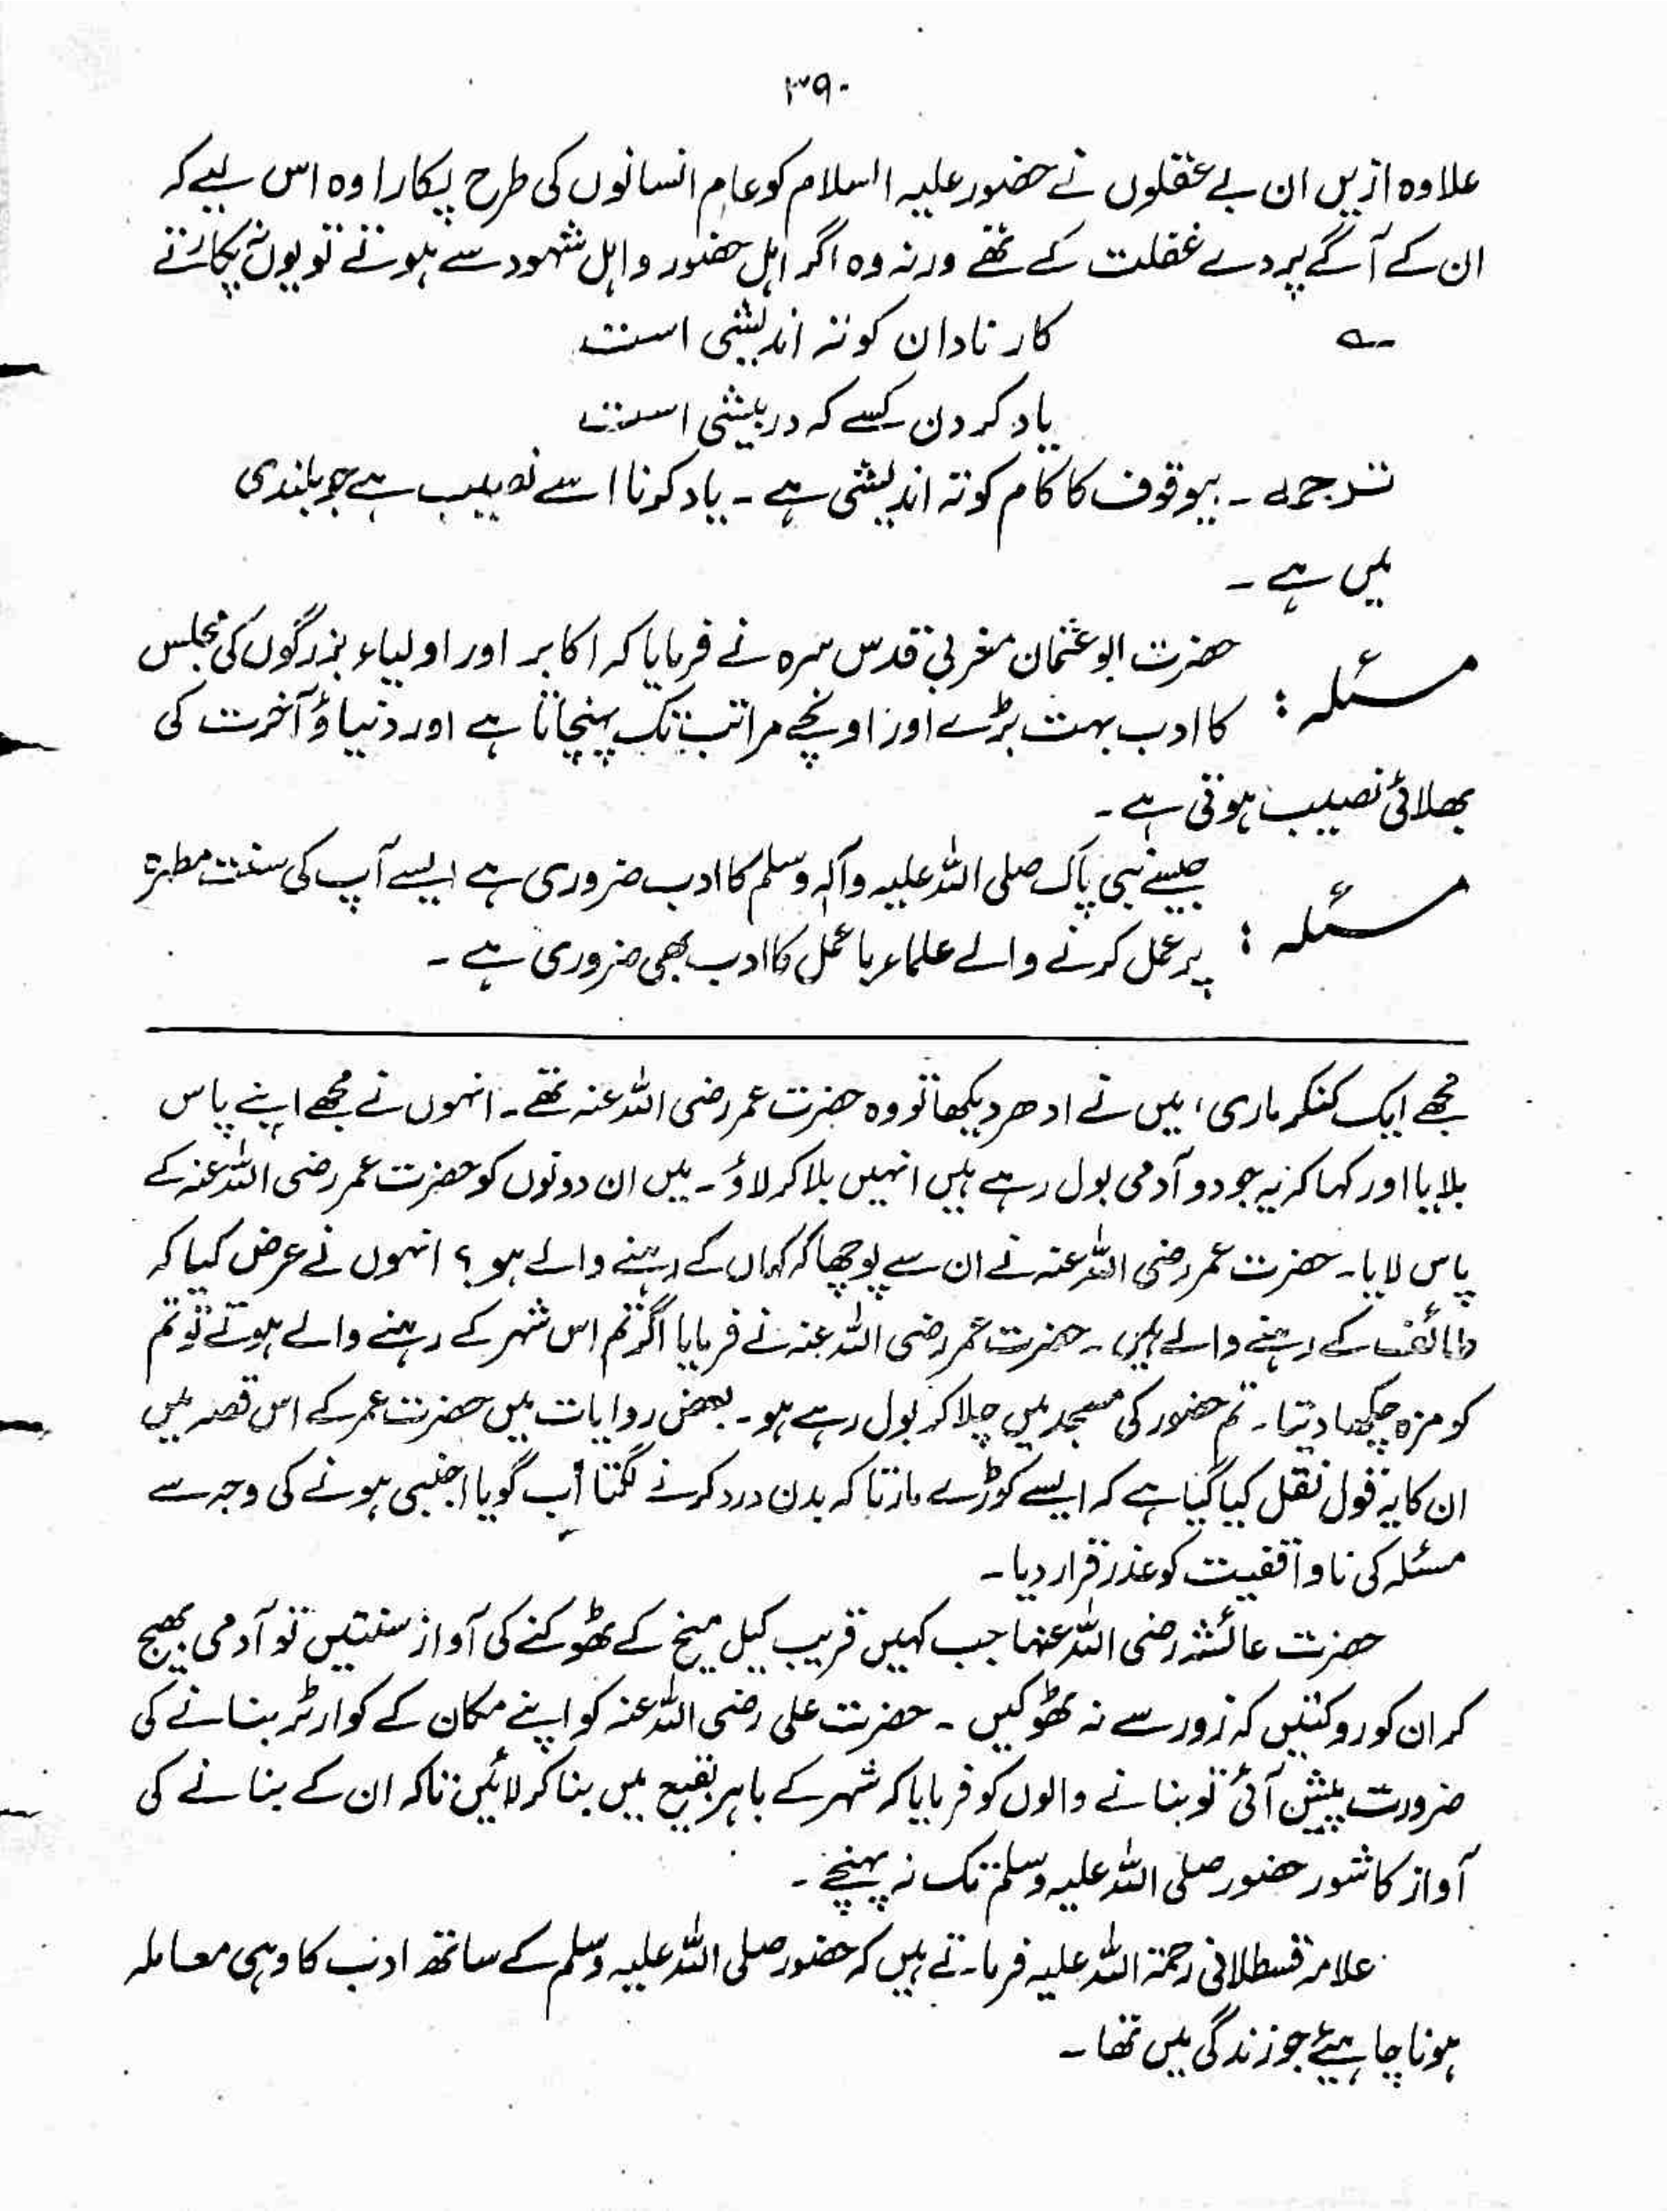 ۳۹۰
علاوہ ازیں ان بے عقلوں نے حضور علیہ السلام کو عام انسانوں کی طرح پکارا وہ اس لیے کہ
ان کے آگے پردے غفلت کے تھے ورنہ وہ اگر اہل حضور و اہل شہود سے ہوتے تو یوں نہ پکارتے
؎ کار نادان کوتہ اندیشی است
یاد کردن کسے کہ در پیشی است
ترجمہ ۔ بیوقوف کا کام کوتہ اندیشی ہے ۔ یاد کرنا اسے نصیب ہے جو بلندی
میں ہے ۔
مسئلہ : حضرت ابو عثمان مغربی قدس سرہ نے فرمایا کہ اکابر اور اولیاء بزرگوں کی مجلس
کا ادب بہت بڑے اور اونچے مراتب تک پہنچاتا ہے اور دنیا و آخرت کی
بھلائی نصیب ہوتی ہے ۔
مسئلہ : جیسے نبی پاک صلی اللہ علیہ وآلہ وسلم کا ادب ضروری ہے ایسے آپ کی سنت مطہرہ
پر عمل کرنے والے علماء باعمل کا ادب بھی ضروری ہے ۔
مجھے ایک کنکر ماری، میں نے ادھر دیکھا تو وہ حضرت عمر رضی اللہ عنہ تھے ۔ انہوں نے مجھے اپنے پاس
بلایا اور کہا کہ یہ جو دو آدمی بول رہے ہیں انہیں بلا کر لاؤ ۔ میں ان دونوں کو حضرت عمر رضی اللہ عنہ کے
پاس لایا ۔ حضرت عمر رضی اللہ عنہ نے ان سے پوچھا کہ کہاں کے رہنے والے ہو؟ انہوں نے عرض کیا کہ
طائف کے رہنے والے ہیں ۔ حضرت عمر رضی اللہ عنہ نے فرمایا اگر تم اس شہر کے رہنے والے ہوتے تو تم
کو مزہ چکھا دیتا ۔ تم حضور کی مسجد میں چلا کر بول رہے ہو ۔ بعض روایات میں حضرت عمر کے اس قصہ میں
ان کا یہ قول نقل کیا گیا ہے کہ ایسے کوڑے مارتا کہ بدن درد کرنے لگتا اب گویا اجنبی ہونے کی وجہ سے
مسئلہ کی ناواقفیت کو عذر قرار دیا ۔
حضرت عائشہ رضی اللہ عنہا جب کہیں قریب کیل میخ کے ٹھوکنے کی آواز سنتیں تو آدمی بھیج
کر ان کو روکتیں کہ زور سے نہ ٹھوکیں ۔ حضرت علی رضی اللہ عنہ کو اپنے مکان کے کوارٹر بنانے کی
ضرورت پیش آئی تو بنانے والوں کو فرمایا کہ شہر کے باہر بقیع میں بنا کر لائیں تاکہ ان کے بنانے کی
آواز کا شور حضور صلی اللہ علیہ وسلم تک نہ پہنچے ۔
علامہ قسطلانی رحمۃ اللہ علیہ فرماتے ہیں کہ حضور صلی اللہ علیہ وسلم کے ساتھ ادب کا وہی معاملہ
ہونا چاہیئے جو زندگی میں تھا ۔